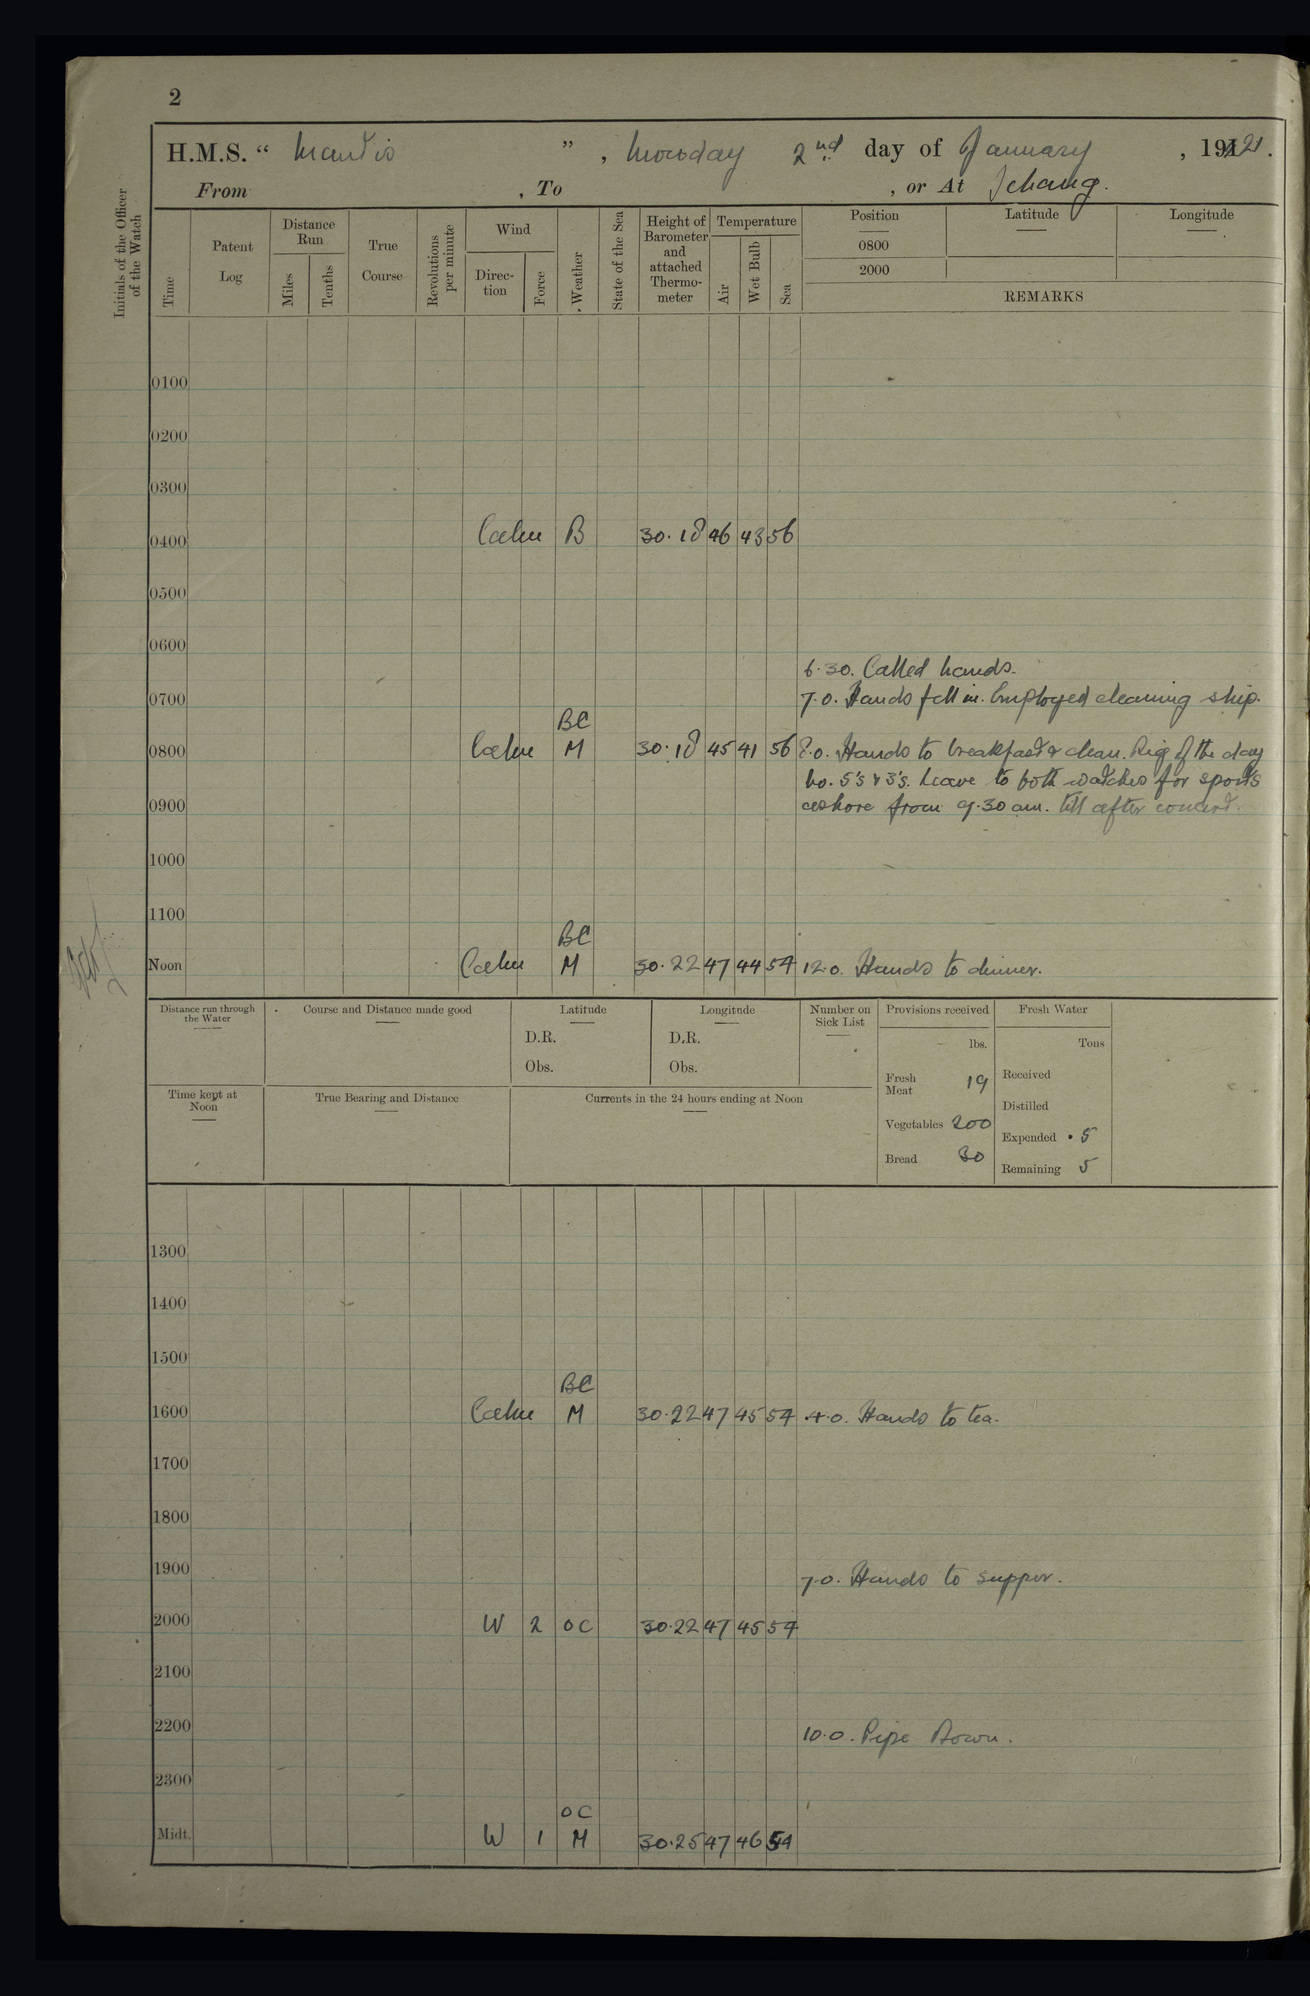 2
H.M.S. “ Mantis ” , Monday 2nd day of January , 1921.
From , To , or At Ichang.
Initials of the Officer of the Watch
Time
Patent Log
Distance Run
Miles
Tenths
True Course
Revolutions per minute
Wind
Direc-tion
Force
Weather
State of the Sea
Height of Barometer and attached Thermo-meter
Temperature
Air
Wet Bulb
Sea
Position Latitude Longitude
0800
2000
REMARKS
0100
0200
0300
0400 Calm B 30.18 46 43 56
0500
0600
6.30. Called hands.
0700 7.0. Hands fell in. Employed cleaning ship.
BC
0800 Calm M 30.18 45 41 56 8.0. Hands to breakfast & clean. Rig of the day
No. 5's & 3's. Leave to both watches for sports
0900 ashore from 9.30 am. till after concert.
1000
1100
BC
Noon Calm M 30.22 47 44 54 12.0. Hands to dinner.
Distance run through the Water
Course and Distance made good
Latitude
D.R.
Obs.
Longitude
D.R.
Obs.
Number on Sick List
Provisions received
lbs.
Fresh Meat 19
Vegetables 200
Bread 30
Fresh Water
Tons
Received
Distilled
Expended .5
Remaining 5
Time kept at Noon
True Bearing and Distance
Currents in the 24 hours ending at Noon
1300
1400
1500
BC
1600 Calm M 30.22 47 45 54 4.0. Hands to tea.
1700
1800
1900 7.0. Hands to supper.
2000 W 2 OC 30.22 47 45 54
2100
2200 10.0. Pipe Down.
2300
OC
Midt. W 1 M 30.25 47 46 54